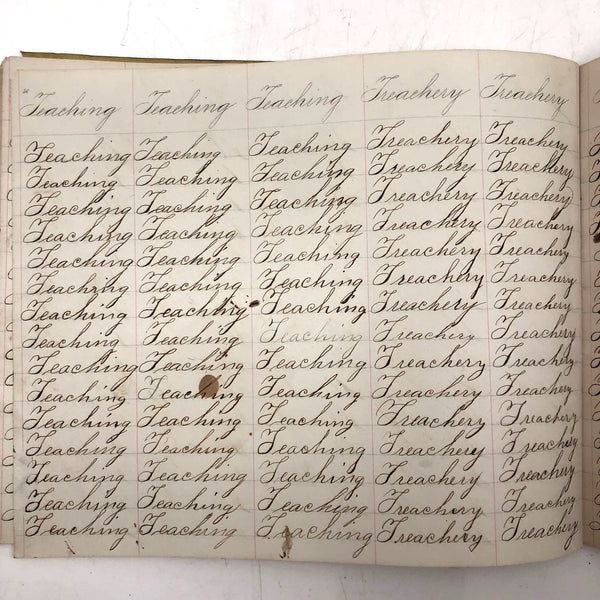 Teaching Teaching Teaching Treachery Treachery
Teaching Teaching Teaching Treachery Treachery
Teaching Teaching Teaching Treachery Treachery
Teaching Teaching Teaching Treachery Treachery
Teaching Teaching Teaching Treachery Treachery
Teaching Teaching Teaching Treachery Treachery
Teaching Teaching Teaching Treachery Treachery
Teaching Teaching Teaching Treachery Treachery
Teaching Teaching Teaching Treachery Treachery
Teaching Teaching Teaching Treachery Treachery
Teaching Teaching Teaching Treachery Treachery
Teaching Teaching Teaching Treachery Treachery
Teaching Teaching Teaching Treachery Treachery
Teaching Teaching Teaching Treachery Treachery
Teaching Teaching Teaching Treachery Treachery
Teaching Teaching Teaching Treachery Treachery